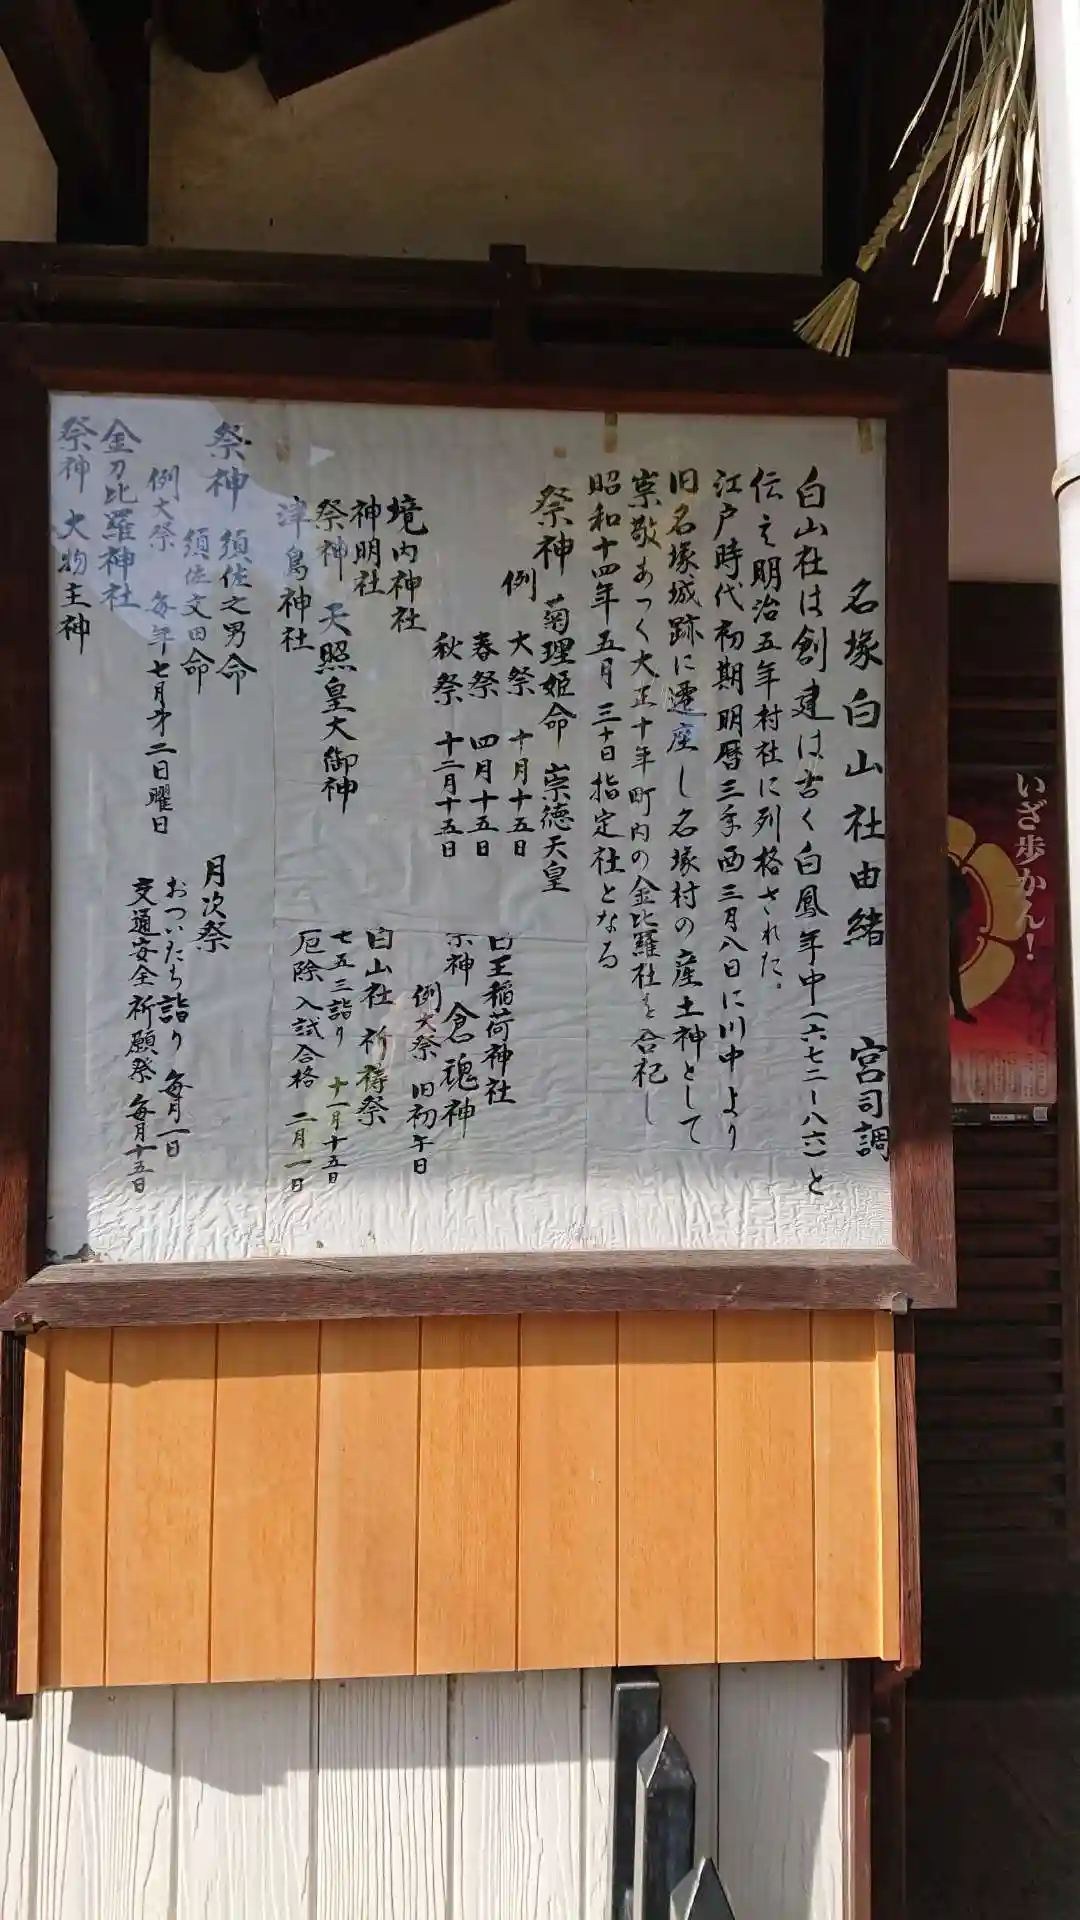 名塚白山社由緒 宮司調
白山社は創建は古く白鳳年中(六七二ー八六)と
伝え明治五年村社に列格された。
江戸時代初期明暦三年酉三月八日に川中より
旧名塚城跡に遷座し名塚村の産土神として
崇敬あつく大正十年町内の金比羅社を合祀し
昭和十四年五月三十日指定社となる
祭神 菊理姫命 崇徳天皇
例大祭 十月十五日
春祭 四月十五日
秋祭 十二月十五日
境内神社
神明社
祭神 天照皇大御神
津島神社
祭神 須佐之男命
須佐文田命
例大祭 毎年七月才二日曜日
金刀比羅神社
祭神 大物主神
白王稲荷神社
祭神 倉魂神
例大祭 旧初午日
白山社 祈祷祭
七五三詣り 十一月十五日
厄除 入試合格 二月一日
月次祭
おついたち詣り 毎月一日
交通安全祈願祭 毎月十五日
いざ歩かん!